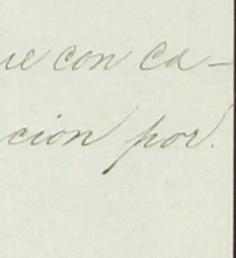 ue con ca-
cion por.